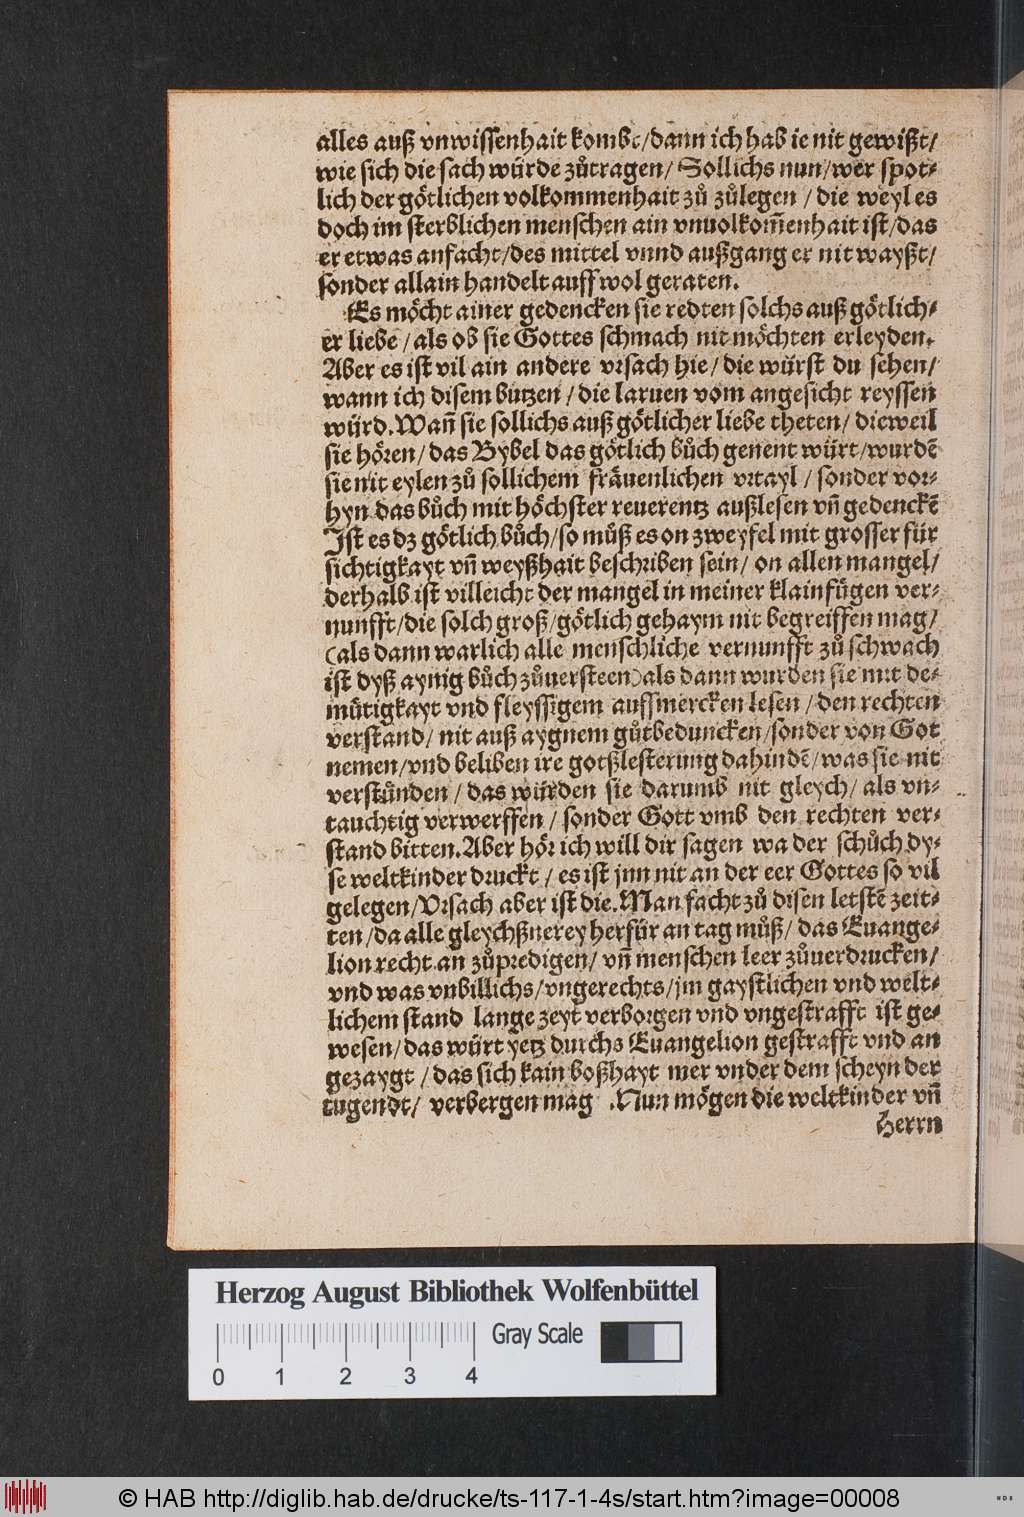 alles auß vnwissenhait kombt/dann ich hab ie nit gewißt/
wie sich die sach würde zůtragen/ Sollichs nun/wer spot⸗
lich der götlichen volkommenhait zů zůlegen / die weyl es
doch im sterblichen menschen ain vnuolkom̃enhait ist/das
er etwas anfacht/des mittel vnnd außgang er nit wayßt/
sonder allain handelt auff wol geraten.
Es möcht ainer gedencken sie redten solchs auß götlich⸗
er liebe / als ob sie Gottes schmach nit möchten erleyden.
Aber es ist vil ain andere vrsach hie/ die würst du sehen/
wann ich disem butzen / die laruen vom angesicht reyssen
würd. Wañ sie sollichs auß götlicher liebe theten/ dieweil
sie hören/das Bybel das götlich bůch genent würt/wurdẽ
sie nit eylen zů sollichem fräuenlichen vrtayl / sonder vor⸗
hyn das bůch mit höchster reuerentz außlesen vñ gedenckẽ
Ist es dz götlich bůch/so můß es on zweyfel mit grosser für
sichtigkayt vñ weyßhait beschriben sein/ on allen mangel/
derhalb ist villeicht der mangel in meiner klainfügen ver⸗
nunfft/die solch groß/götlich gehaym nit begreiffen mag/
(als dann warlich alle menschliche vernunfft zů schwach
ist dyß aynig bůch zůuersteen) als dann wurden sie mit de⸗
mütigkayt vnd fleyssigem auffmercken lesen / den rechten
verstand/ nit auß aygnem gůtbeduncken/sonder von Got
nemen/vnd beliben ire gotßlesterung dahindẽ/was sie nit
verstůnden / das würden sie darumb nit gleych/ als vn⸗
tauchtig verwerffen / sonder Gott vmb den rechten ver⸗
stand bitten. Aber hör ich will dir sagen wa der schůch dy⸗
se weltkinder druckt / es ist jnn nit an der eer Gottes so vil
gelegen/Vrsach aber ist die. Man facht zů disen letstẽ zeit⸗
ten/da alle gleychßnerey herfür an tag můß/ das Euange⸗
lion recht an zůpredigen/ vñ menschen leer zůuerdrucken/
vnd was vnbillichs/vngerechts/jm gaystlichen vnd welt⸗
lichem stand lange zeyt verborgen vnd vngestrafft ist ge⸗
wesen/das würt yetz durchs Euangelion gestrafft vnd an
gezaygt / das sich kain boßhayt mer vnder dem scheyn der
tugendt/ verbergen mag . Nun mögen die weltkinder vñ
Herrn
Herzog August Bibliothek Wolfenbüttel
Gray Scale
0 1 2 3 4
© HAB http://diglib.hab.de/drucke/ts-117-1-4s/start.htm?image=00008